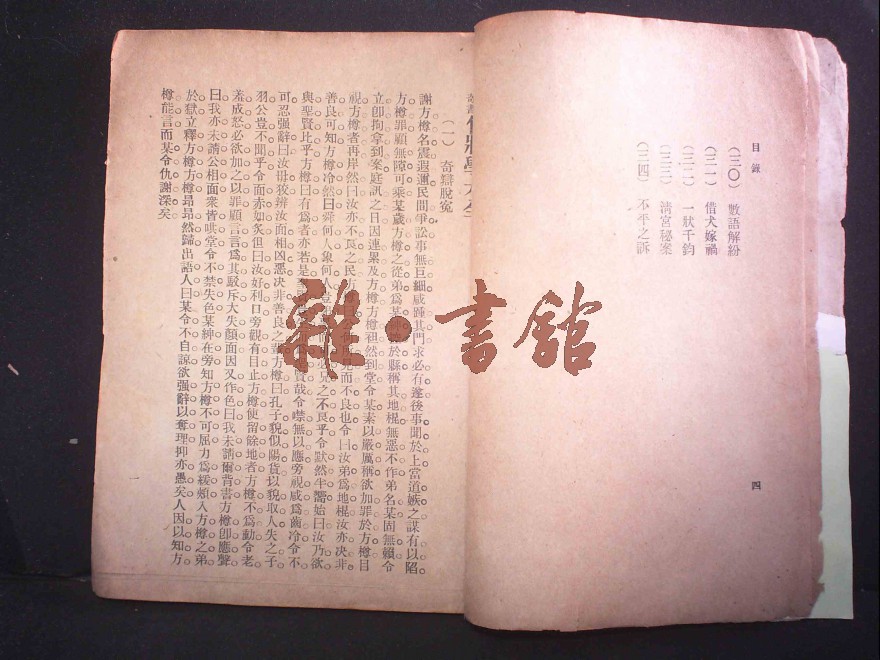 目錄
(三〇) 數語解紛
(三一) 借犬嫁禍
(三二) 一狀千鈞
(三三) 清宮秘案
(三四) 不平之訴
四
(一) 奇辯脫寃
謝方樽名震遐邇民間爭訟事無巨細咸踵其門求必有遂後事聞於上當道嫉之謀有以陷
方樽罪顧無隙可乘某歲方樽之從弟爲某紳於縣稱其地棍無惡不作弟名某固無賴令
立卽拘拿到案庭訊之日因連累及方樽方樽袒然到堂令某素以嚴厲稱欲加罪於方樽目
視方樽者再岸然曰汝亦不良之民方而不良也令曰汝弟爲地棍汝亦决非
善良可知方樽冷然曰舜何人象何人兄之不良乎令默然半嚮始曰汝乃欲
與聖賢比乎方樽曰有爲者亦若是賢哉令噤無以應旁視咸爲齒冷令不
可忍强辭曰汝毋狡辨汝面相凶惡决非善良之輩方樽曰孔子貌似陽貨以貌取人失之子
羽公豈不聞乎令面赤如炙怛曰汝好利口旁觀有目止方樽使留餘地者方樽不爲動令老
羞成怒必欲加之以罪顧言言爲其駁斥大失顏面因又作色曰我未請爾背書方樽卽應聲
曰我亦未請公相面衆皆哄堂令不禁失色某紳在旁知方樽不可屈力爲緩頰入方樽之弟
於獄立釋方樽方樽昂昂然歸出語人曰某令不自諒欲强辭以奪理抑亦愚矣人因以知方
樽能言而某令仇謝深矣
雜·書館